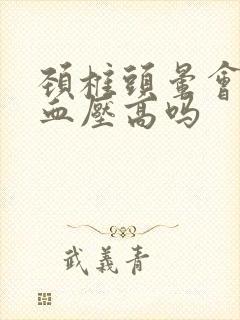 頸椎頭暈會
血壓高嗎
武義青